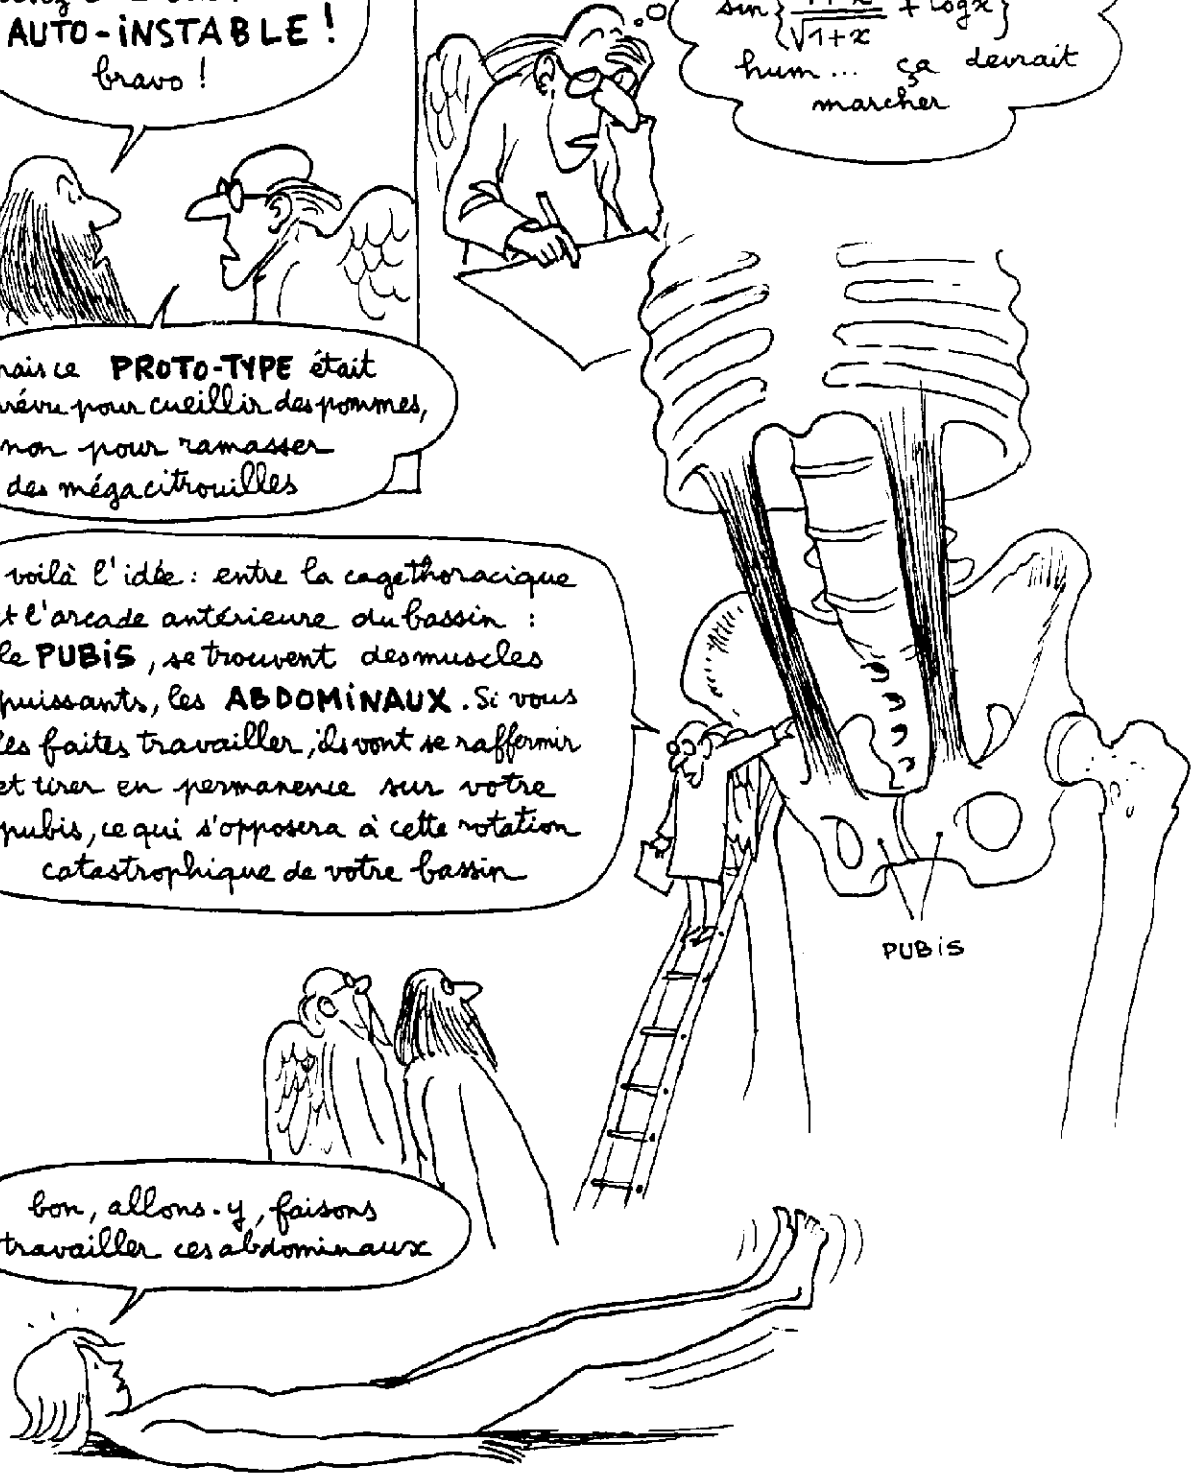 AUTO-iNSTABLE !
bravo !
sin { + log x }
√1+x
hum... ça devrait
marcher
mais ce PROTO-TYPE était
prévu pour cueillir des pommes,
non pour ramasser
des mégacitrouilles
voilà l'idée : entre la cage thoracique
et l'arcade antérieure du bassin :
le PUBiS, se trouvent des muscles
puissants, les ABDOMiNAUX. Si vous
les faites travailler, ils vont se raffermir
et tirer en permanence sur votre
pubis, ce qui s'opposera à cette rotation
catastrophique de votre bassin
PUBiS
bon, allons-y, faisons
travailler ces abdominaux